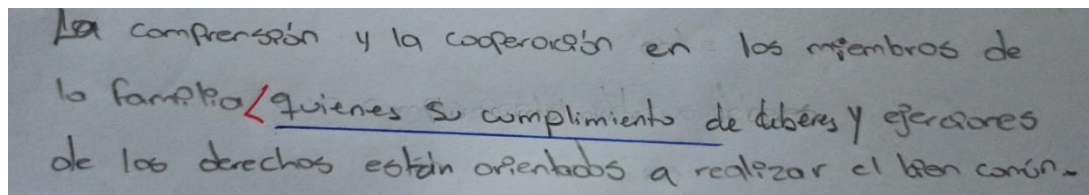 La comprensión y la cooperación en los miembros de
la familia quienes su cumplimiento de deberes y ejerciones
de los derechos están orientados a realizar el bien común.